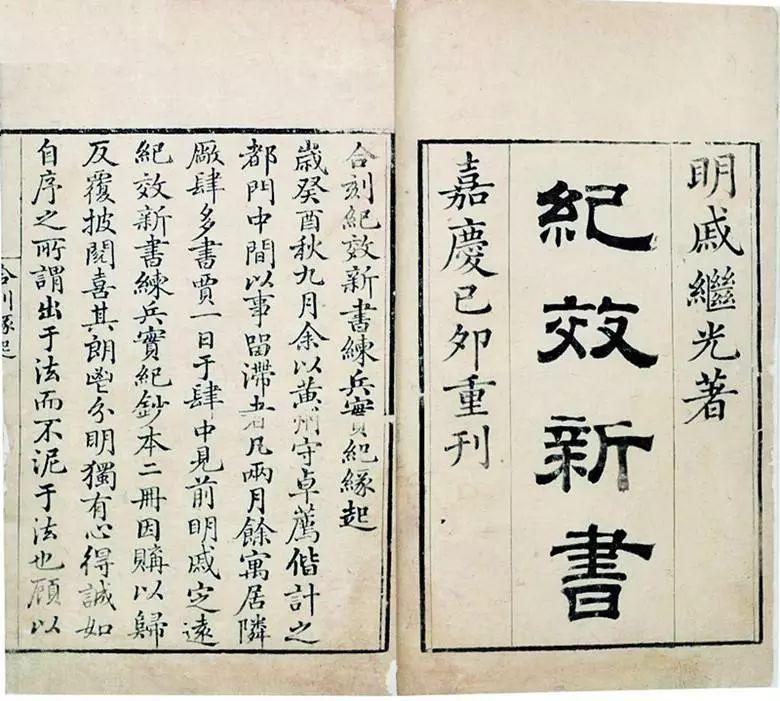 明戚繼光著
紀效新書
嘉慶己卯重刊
合刻紀效新書練兵實紀緣起
歲癸酉秋九月余以黃州守卓薦偕計之
都門中間以事留滯者凡兩月餘寓居隣
廠肆多書賈一日于肆中見前明戚定遠
紀效新書練兵實紀鈔本二冊因購以歸
反覆披閱喜其朗鬯分明獨有心得誠如
自序之所謂出于法而不泥于法也顧以
合刊緣起